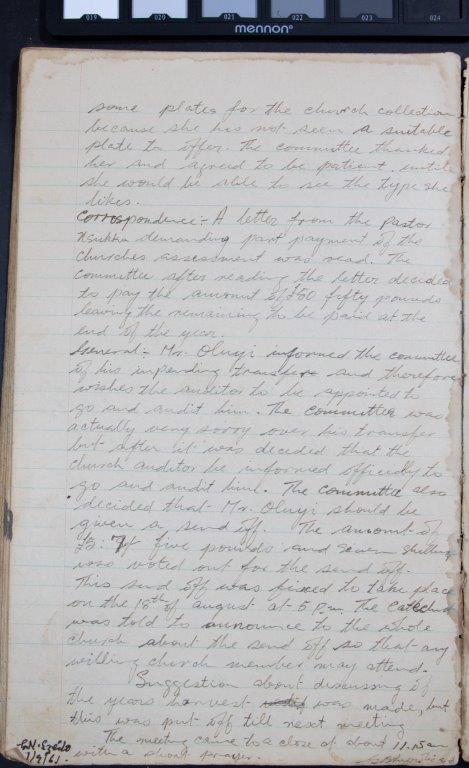 019 020 021 022 023 024
mennon
some plates for the church collection
because she has not seen a suitable
plate to offer. The committee thanked
her and agreed to be patient until
she would be able to see the type she
likes.
Correspondence:- A letter from the Pastor
Nsukka demanding part payment of the
churches assessment was read. The
committee after reading the letter decided
to pay the amount of £50 fifty pounds
leaving the remaining to be paid at the
end of the year.
General:- Mr. Oluyi informed the committee
of his impending transfer and therefore
wishes the auditor to be appointed to
go and audit him. The committee was
actually very sorry over his transfer
but after it was decided that the
church auditor be informed officially to
go and audit him. The committee also
decided that Mr. Oluyi should be
given a send off. The amount of
£5. 7/ five pounds and seven shillings
was voted out for the send off.
This send off was fixed to take place
on the 18th of august at 5 P.m. The Catechist
was told to announce to the whole
church about the send off so that any
willing church member may attend.
Suggestion about discussing of
the years harvest was made, but
this was put off till next meeting
The meeting came to a close at about 11.15am
with a short prayer.
7/9/61